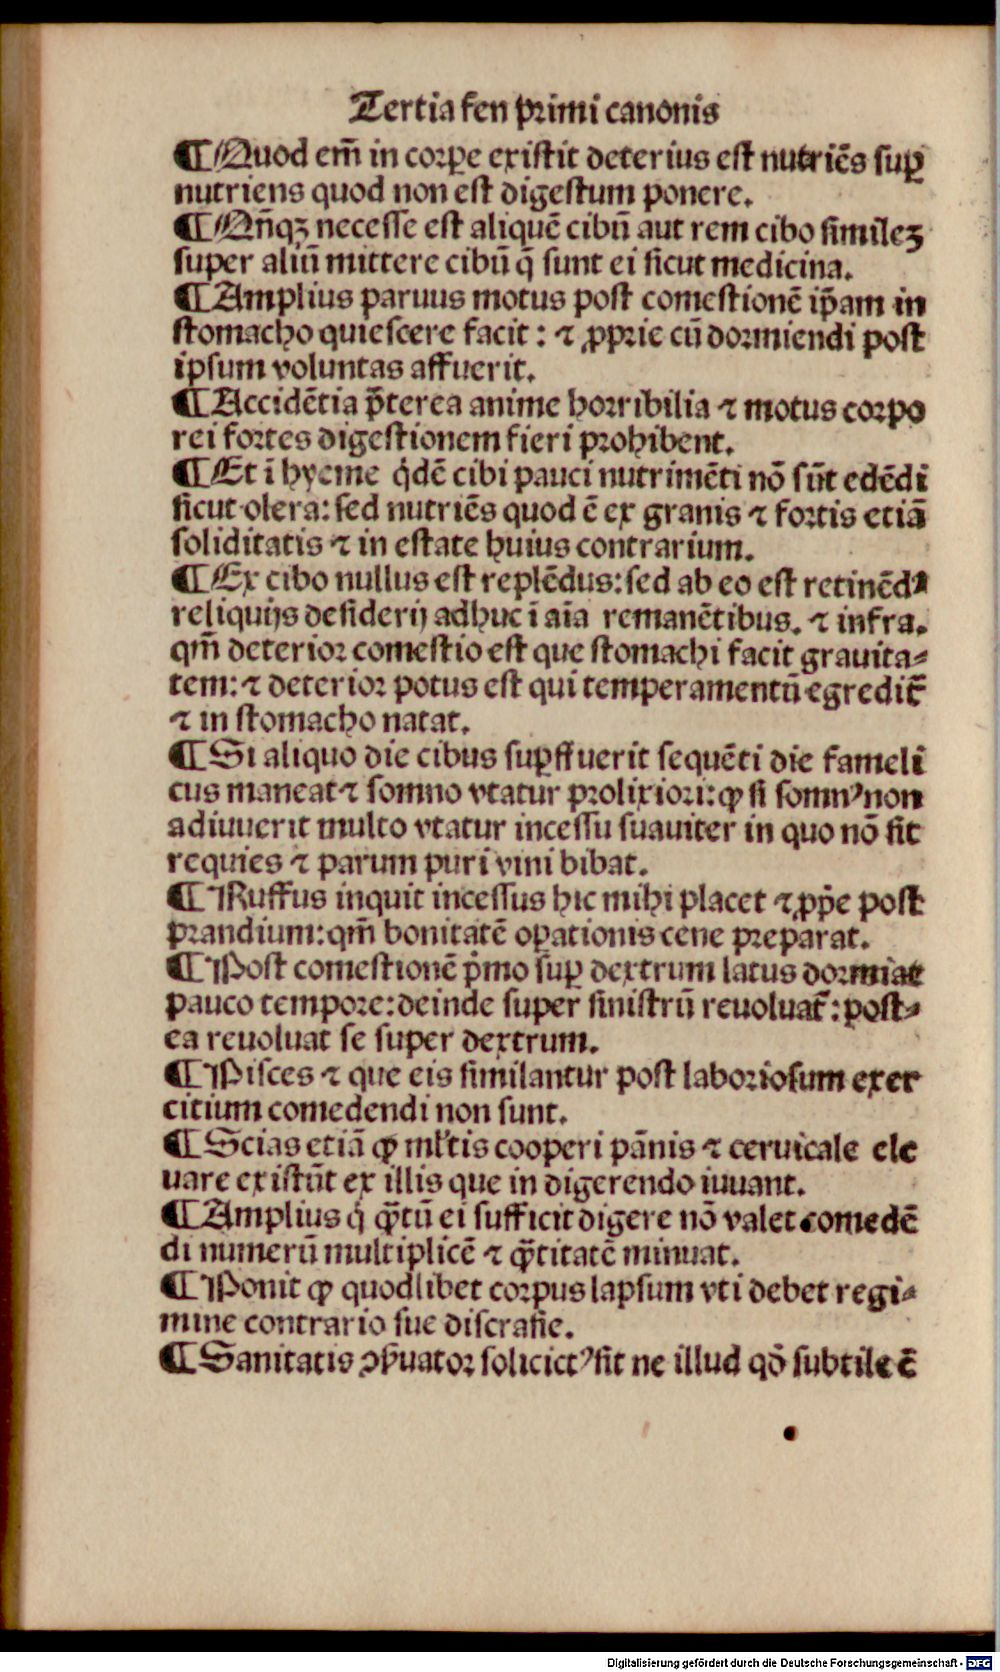 Tertia fen primi canonis
¶Quod em̄ in corꝑe existit deterius est nutriēs suꝑ
nutriens quod non est digestum ponere.
¶Qn̄qꝫ necesse est aliquē cibū aut rem cibo simileꝫ
super aliū mittere cibū q̄ sunt ei sicut medicina.
¶Amplius paruus motus post comestionē ip̄am in
stomacho quiescere facit: ⁊ ꝓprie cū dormiendi post
ipsum voluntas affuerit.
¶Accidētia p̄terea anime horribilia ⁊ motus corpo
rei fortes digestionem fieri prohibent.
¶Et ī hyeme q̇dē cibi pauci nutrimēti nō sūt edēdi
sicut olera: sed nutriēs quod ē ex granis ⁊ fortis etiā
soliditatis ⁊ in estate huius contrarium.
¶Ex cibo nullus est replēdus: sed ab eo est retinēdꝰ
reliquijs desiderij adhuc ī aīa remanētibus. ⁊ infra.
qm̄ deterior comestio est que stomachi facit grauita⸗
tem: ⁊ deterior potus est qui temperamentū egredit᷑
⁊ in stomacho natat.
¶Si aliquo die cibus suꝑffuerit sequēti die fameli
cus maneat ⁊ somno vtatur prolixiori: ꝙ si somnꝰ non
adiuuerit multo vtatur incessu suauiter in quo nō sit
requies ⁊ parum puri vini bibat.
¶Ruffus inquit incessus hic mihi placet ⁊ ꝓp̄e post
prandium: qm̄ bonitatē oꝑationis cene preparat.
¶Post comestionē p̄mo suꝑ dextrum latus dormiat
pauco tempore: deinde super sinistrū reuoluat᷑: post⸗
ea reuoluat se super dextrum.
¶Pisces ⁊ que eis similantur post laboriosum exer
citium comedendi non sunt.
¶Scias etiā ꝙ ml̄tis cooperi pānis ⁊ ceruicale ele
uare existūt ex illis que in digerendo iuuant.
¶Amplius q̇ ꝙ̄tū ei sufficit digere nō valet comedē
di numerū multiplicē ⁊ ꝙ̄titatē minuat.
¶Ponit ꝙ quodlibet corpus lapsum vti debet regi⸗
mine contrario sue discrasie.
¶Sanitatis ꝯẜuator solicitꝰ sit ne illud qō subtile ē
Digitalisierung gefördert durch die Deutsche Forschungsgemeinschaft - DFG